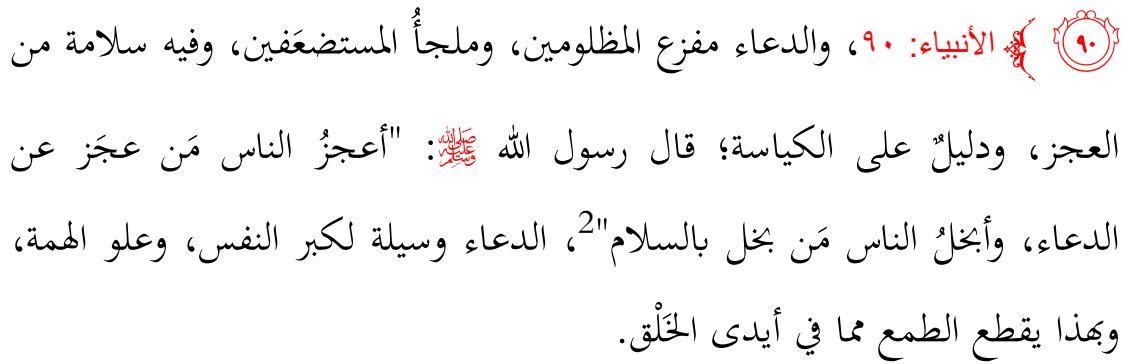 ﴿٩٠﴾ الأنبياء: ٩٠، والدعاء مفزع المظلومين، وملجأُ المستضعَفين، وفيه سلامة من
العجز، ودليلٌ على الكياسة؛ قال رسول الله ﷺ: "أعجزُ الناس مَن عجَز عن
الدعاء، وأبخلُ الناس مَن بخل بالسلام"2، الدعاء وسيلة لكبر النفس، وعلو الهمة،
وبهذا يقطع الطمع مما في أيدى الخَلْق.